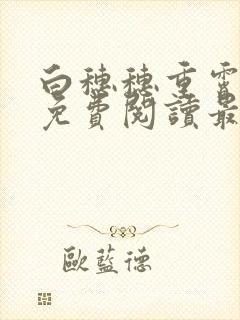 白穗穗重雷
免費閱讀最
歐藍德